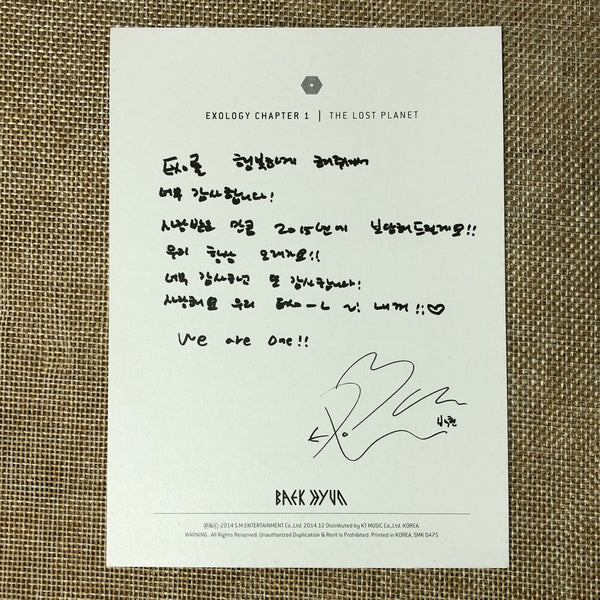 EXOLOGY CHAPTER 1 | THE LOST PLANET
EXO를 행복하게 해줘서
너무 감사합니다!
사랑받은 만큼 2015년에 보답해드릴게요!!
우리 항상 오래가요!!
너무 감사하면 또 감사합니다!
사랑해요 우리 EXO-L 내꺼!!♡
We are one!!
백현
BAEK HYUN
℗&© 2014 S.M.ENTERTAINMENT Co.,Ltd. 2014.12 Distributed by KT MUSIC Co.,Ltd. KOREA.
WARNING : All Rights Reserved. Unauthorized Duplication & Rent is Prohibited. Printed in KOREA. SMK 0475